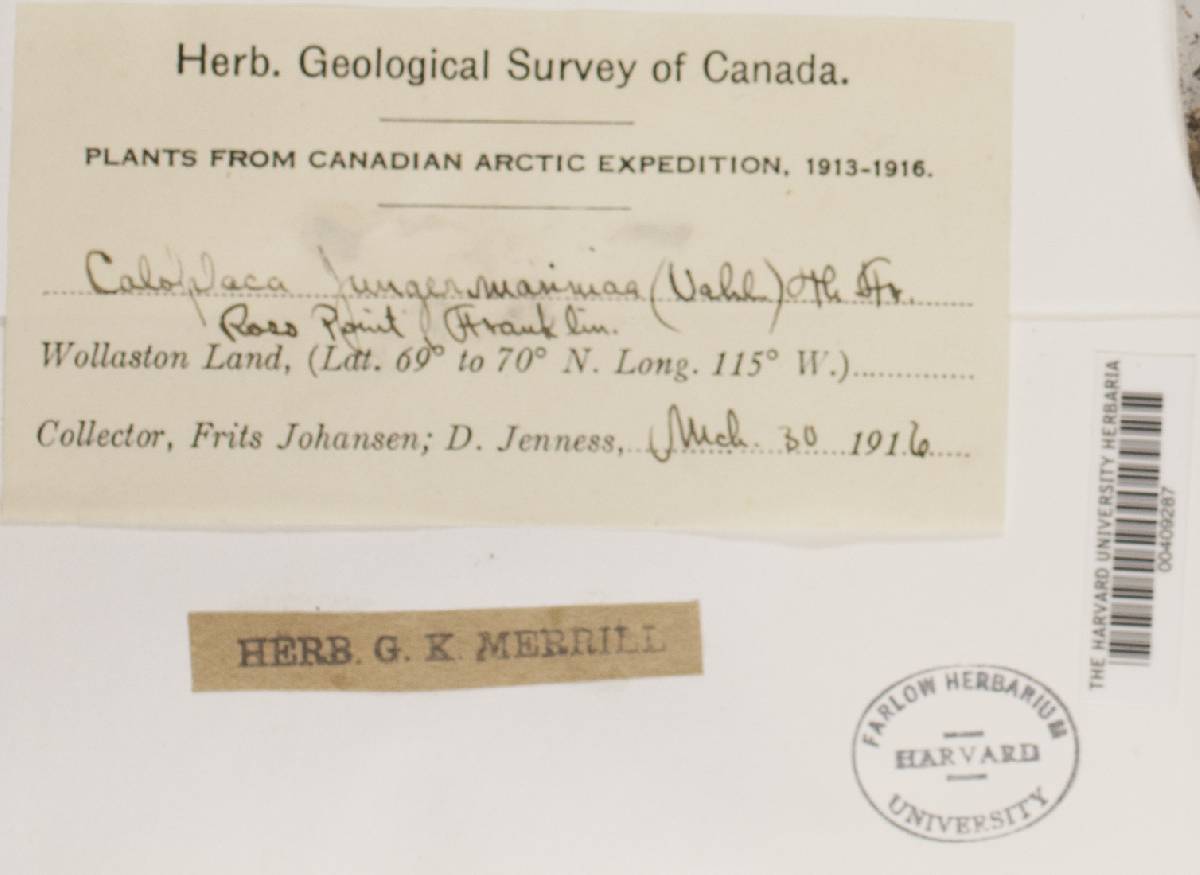 Herb. Geological Survey of Canada.
PLANTS FROM CANADIAN ARCTIC EXPEDITION, 1913-1916.
Caloplaca jungermanniae (Vahl.) Th. Fr.
Ross Point, Franklin.
Wollaston Land, (Lat. 69° to 70° N. Long. 115° W.)
Collector, Frits Johansen; D. Jenness, Mch. 30 1916
HERB. G. K. MERRILL
THE HARVARD UNIVERSITY HERBARIA
00409287
FARLOW HERBARIUM
HARVARD
UNIVERSITY